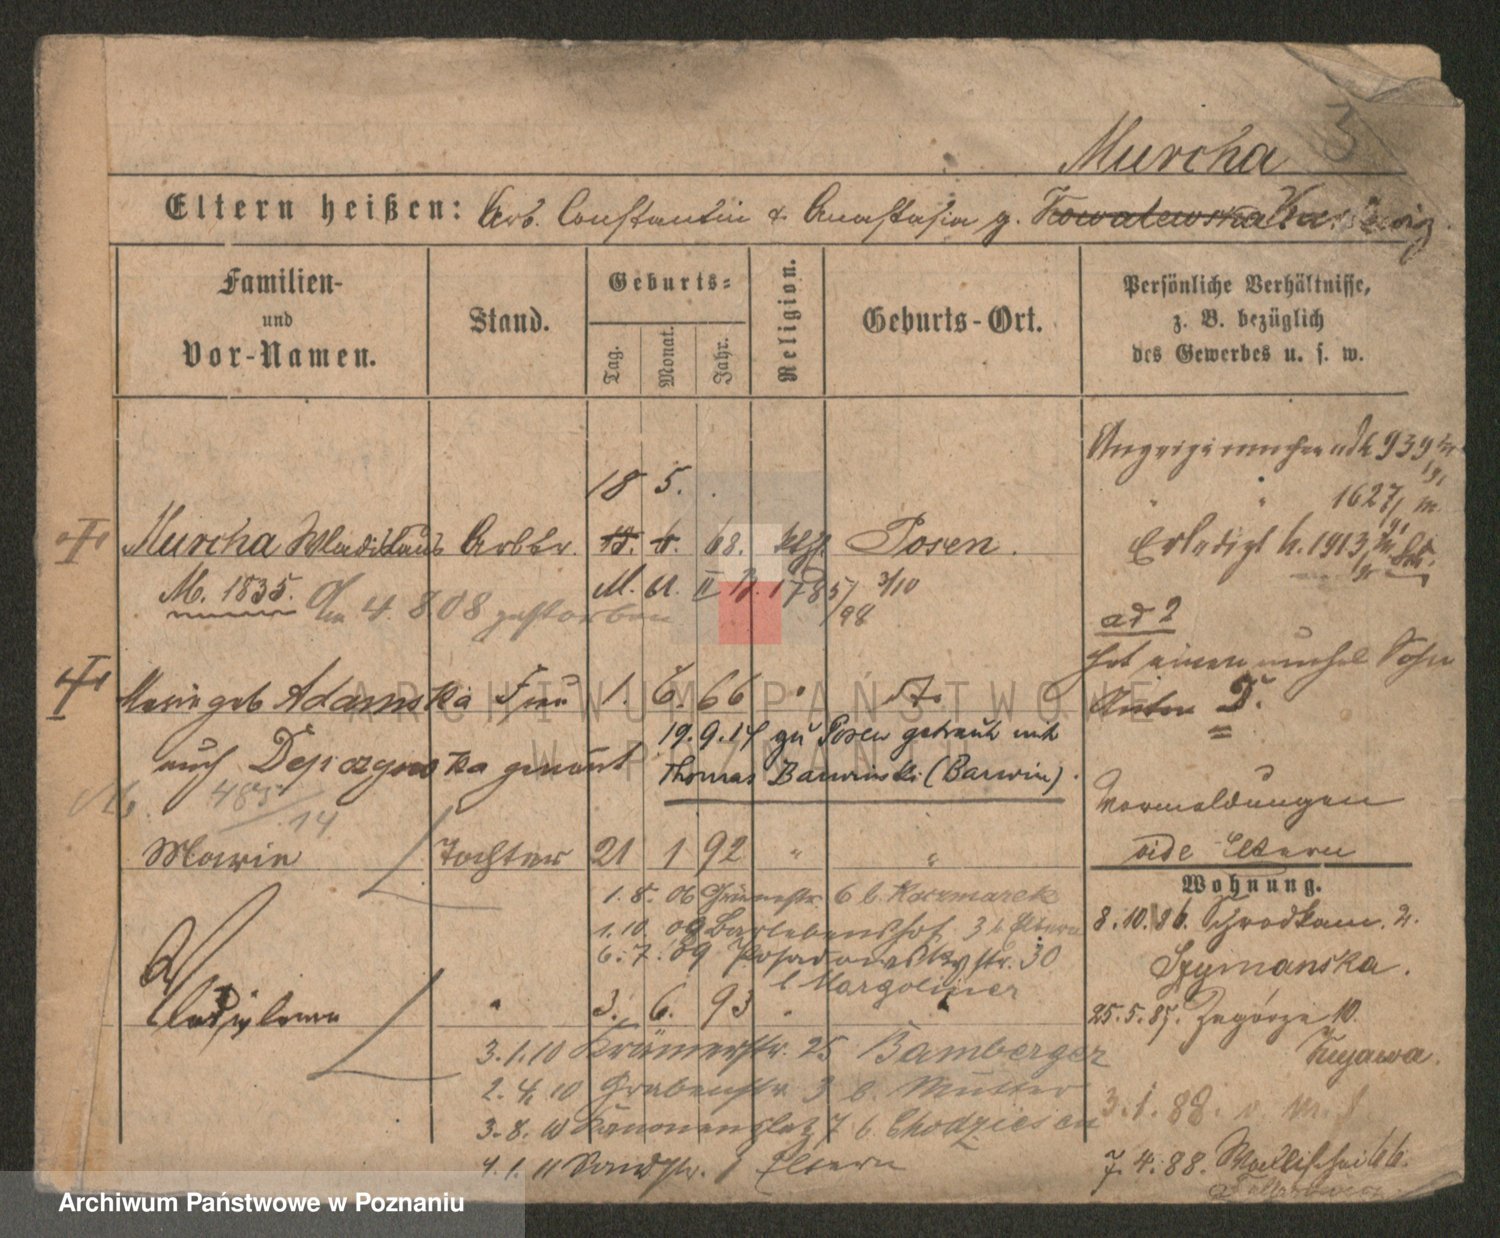 3
Murcha
Eltern heißen: Arb. Constantin & Anastasia g. Kowalewska
Familien- und Vor-Namen.
Stand.
Geburts-
Tag. Monat. Jahr.
Religion.
Geburts-Ort.
Persönliche Verhältnisse, z. B. bezüglich des Gewerbes u. s. w.
939
1627
18 5.
Murcha Wladislaus Arbtr. 68. kth Posen.
Erledigt 1913
M. 1835. Am 4. 8 08 gestorben
M. U. II B. 1785/98 3/10
ad 2
hat einen unehel Sohn
Marie geb Adamska Frau 1. 6. 66
Unter D.
19. 9. 14 zu Posen getraut mit
auch genannt
Thomas Barwinski (Barwin).
483/14
Vormeldungen
vide Eltern
Marie Tochter 21 1 92 " "
Wohnung.
1. 8. 06 Grünestr 6 b. Kaczmarek
8. 10. 86. Schrodkam. 2.
1. 10. 08 Bartlebenshof 3 b Eltern
6. 7. 09 Posadowskystr. 30
Szymanska.
b Margoliner
" 3. 6. 93
25. 5. 87. Zagórze 10.
3. 1. 10 Krämerstr. 25 Bamberger
Kujawa.
2. 4. 10 Grabenstr 3 b. Mutter
3. 1. 88.
3. 8. 10 Kanonenplatz 7 b. Chodziesen
4. 1. 11 Sandstr. Eltern
7. 4. 88. Wallischei 66.
ARCHIWUM PAŃSTWOWE
W POZNANIU
Archiwum Państwowe w Poznaniu